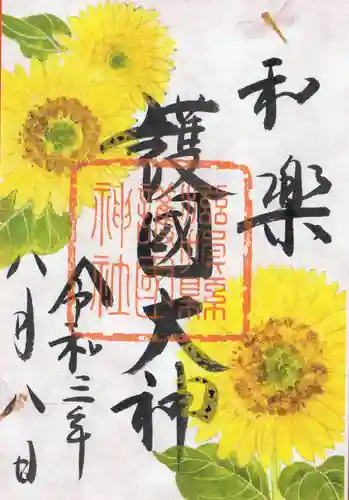 和楽
護國大神
令和三年
八月八日
福島縣
護國
神社